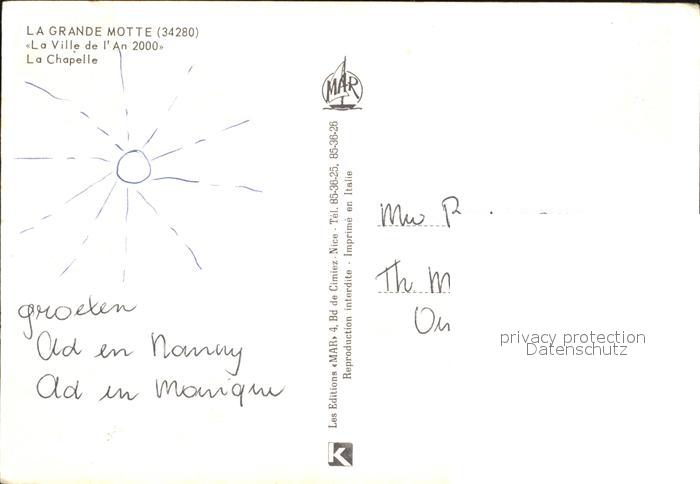 LA GRANDE MOTTE (34280)
«La Ville de l'An 2000»
La Chapelle
MAR
Les Editions «MAR» 4, Bd de Cimiez. Nice - Tél. 85-36-25, 85-36-26
Reproduction interdite - Imprimé en Italie
groeten
Ad en Nancy
Ad en Monique
K
Th M
privacy protection
Datenschutz